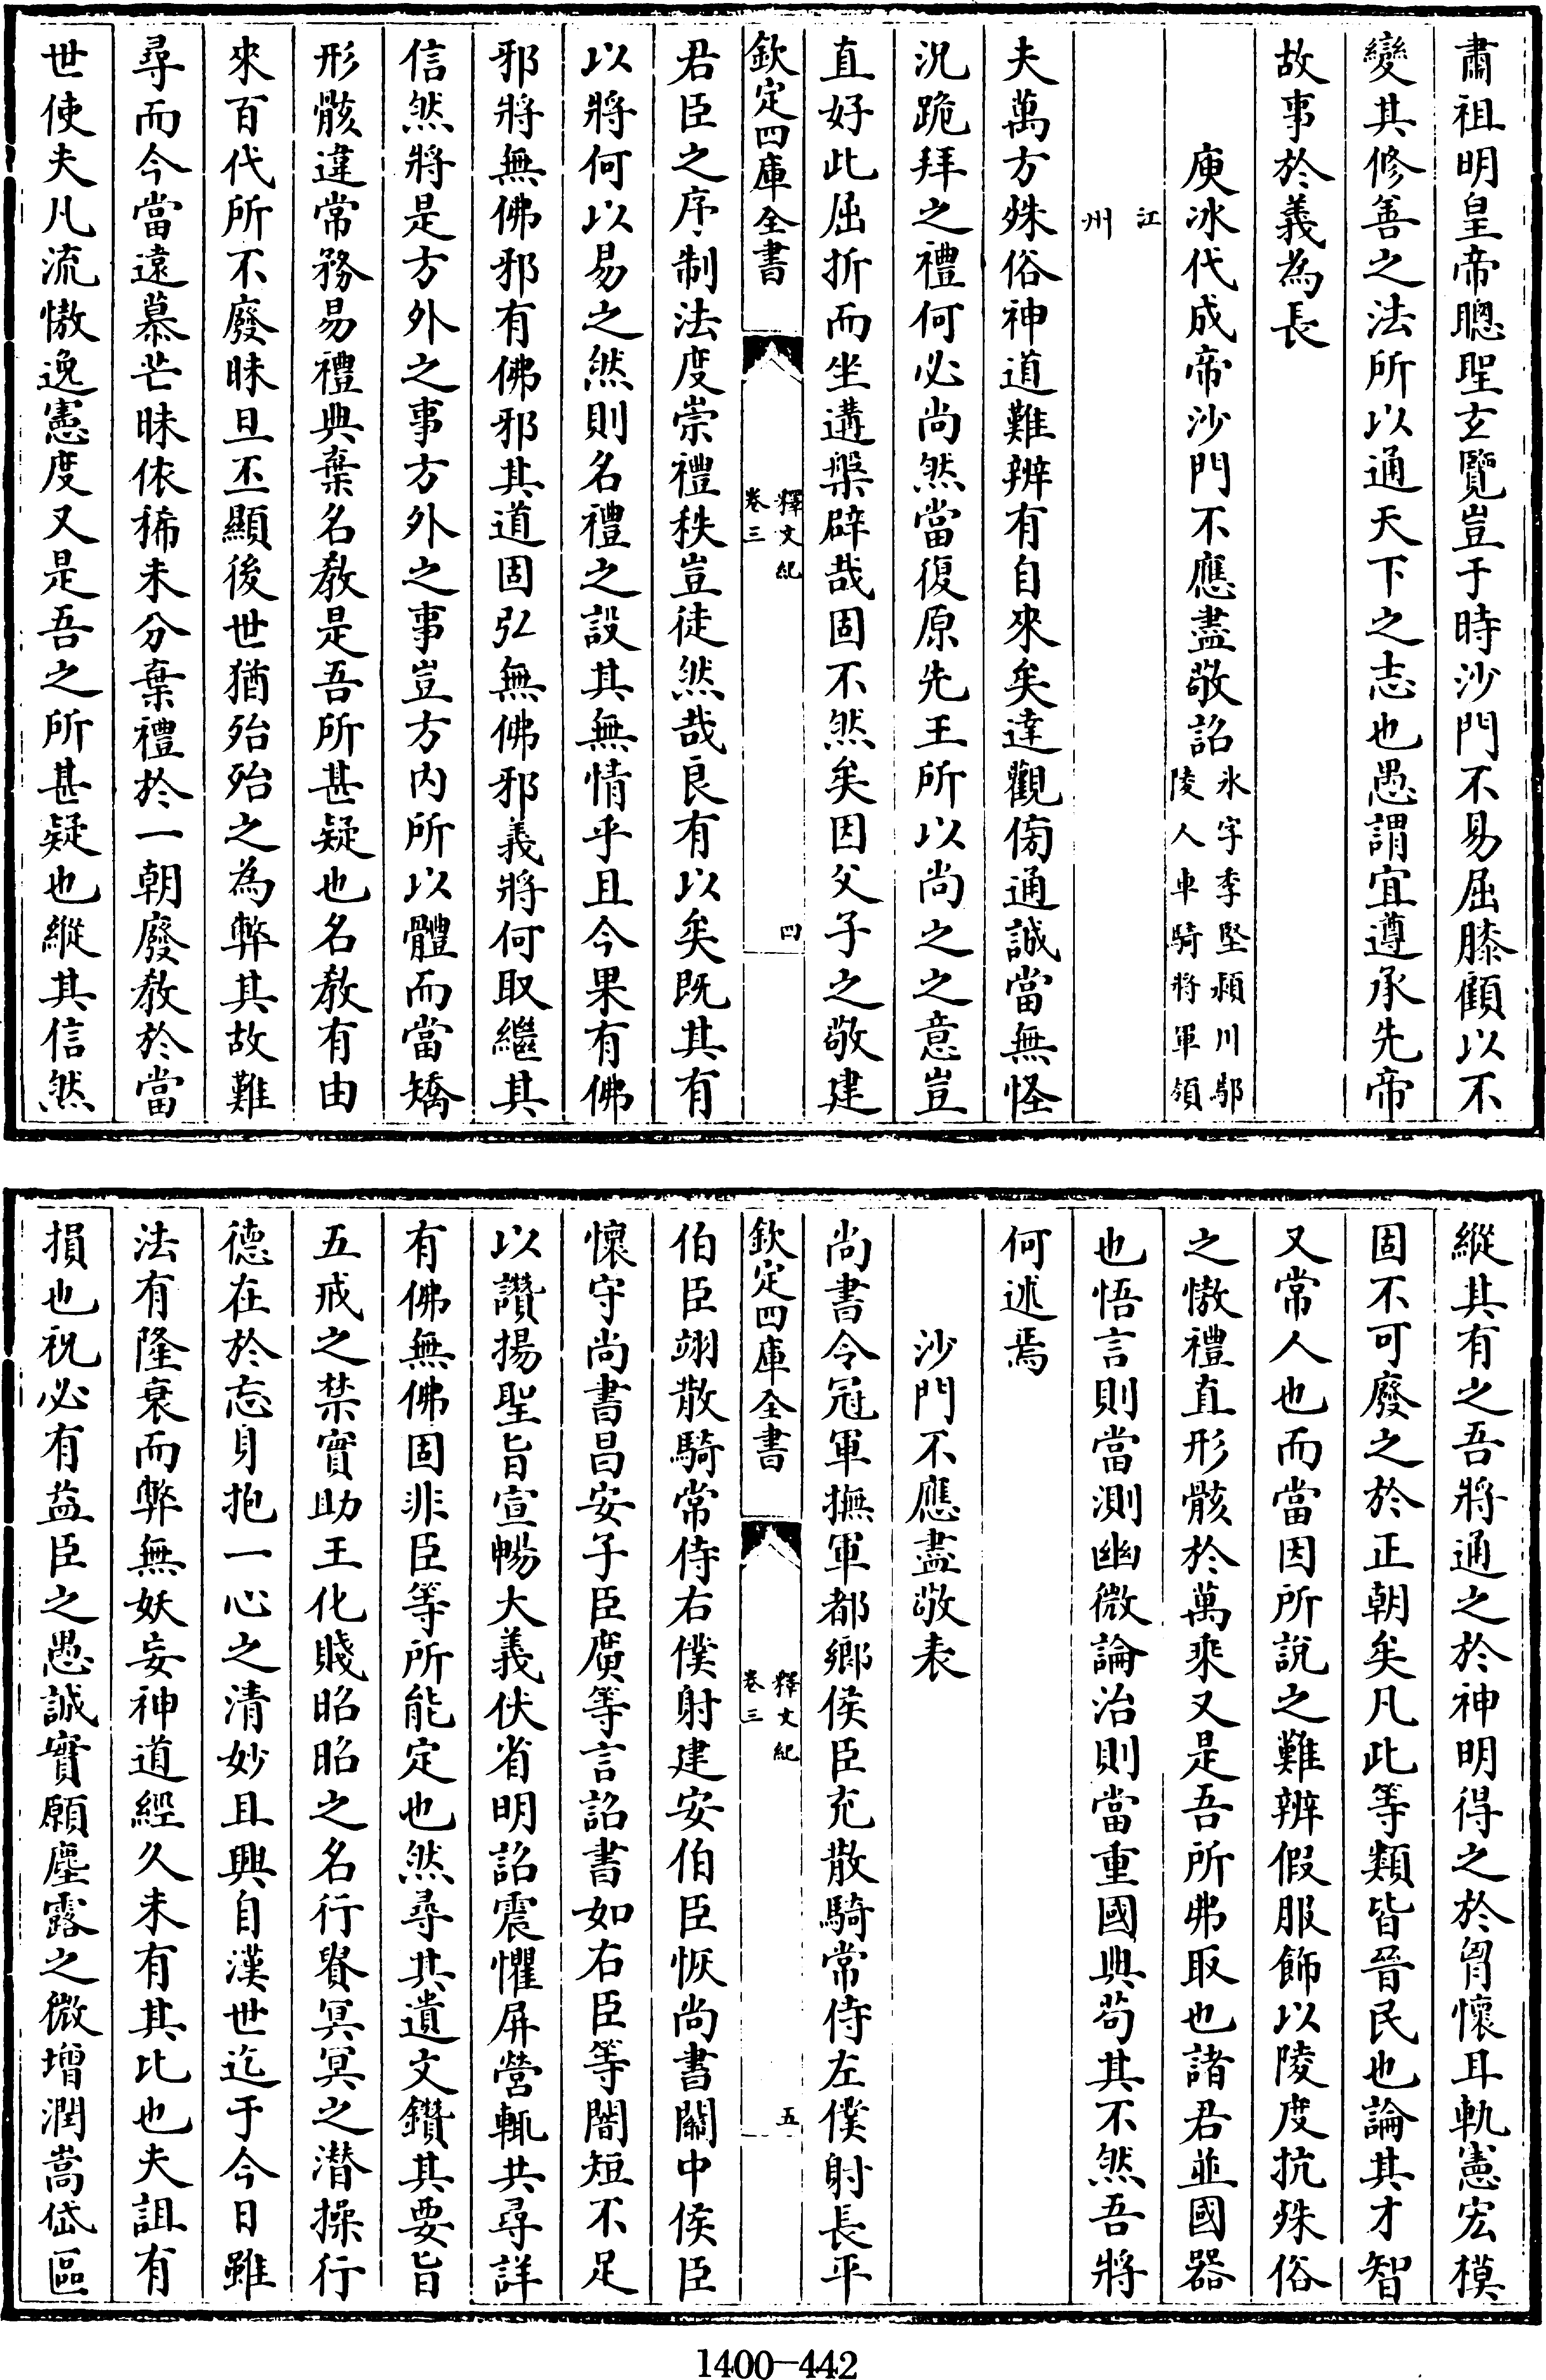 肅祖明皇帝聰聖玄覽豈于時沙門不易屈膝顧以不
變其修善之法所以通天下之志也愚謂宜遵承先帝
故事於義為長
庾冰代成帝沙門不應盡敬詔氷字季堅潁川鄢陵人車騎將軍領
江州
夫萬方殊俗神道難辨有自來矣達觀傍通誠當無怪
況跪拜之禮何必尚然當復原先王所以尚之之意豈
直好此屈折而坐遘槃辟哉固不然矣因父子之敬建
欽定四庫全書 釋文紀 卷三 四
君臣之序制法度崇禮秩豈徒然哉良有以矣既其有
以將何以易之然則名禮之設其無情乎且今果有佛
邪將無佛邪有佛邪其道固弘無佛邪義將何取繼其
信然將是方外之事方外之事豈方内所以體而當矯
形骸違常務易禮典棄名教是吾所甚疑也名教有由
來百代所不廢昧旦丕顯後世猶殆殆之為弊其故難
尋而今當遠慕芒昧依稀未分棄禮於一朝廢教於當
世使夫凡流慠逸憲度又是吾之所甚疑也縱其信然
縱其有之吾將通之於神明得之於胷懐耳軌憲宏模
固不可廢之於正朝矣凡此等類皆晉民也論其才智
又常人也而當因所說之難辨假服飾以陵度抗殊俗
之慠禮直形骸於萬乘又是吾所弗取也諸君並國器
也悟言則當測幽微論治則當重國典苟其不然吾將
何述焉
沙門不應盡敬表
尚書令冠軍撫軍都鄉侯臣充散騎常侍左僕射長平
欽定四庫全書 釋文紀 卷三 五
伯臣翊散騎常侍右僕射建安伯臣恢尚書關中侯臣
懷守尚書昌安子臣廣等言詔書如右臣等闇短不足
以讚揚聖旨宣暢大義伏省明詔震懼屏營輒共尋詳
有佛無佛固非臣等所能定也然尋其遺文鑽其要旨
五戒之禁實助王化賤昭昭之名行貴冥冥之潜操行
德在於忘身抱一心之清妙且興自漢世迄于今日雖
法有隆衰而弊無妖妄神道經久未有其比也夫詛有
損也祝必有益臣之愚誠實願塵露之微增潤嵩岱區
1400—442